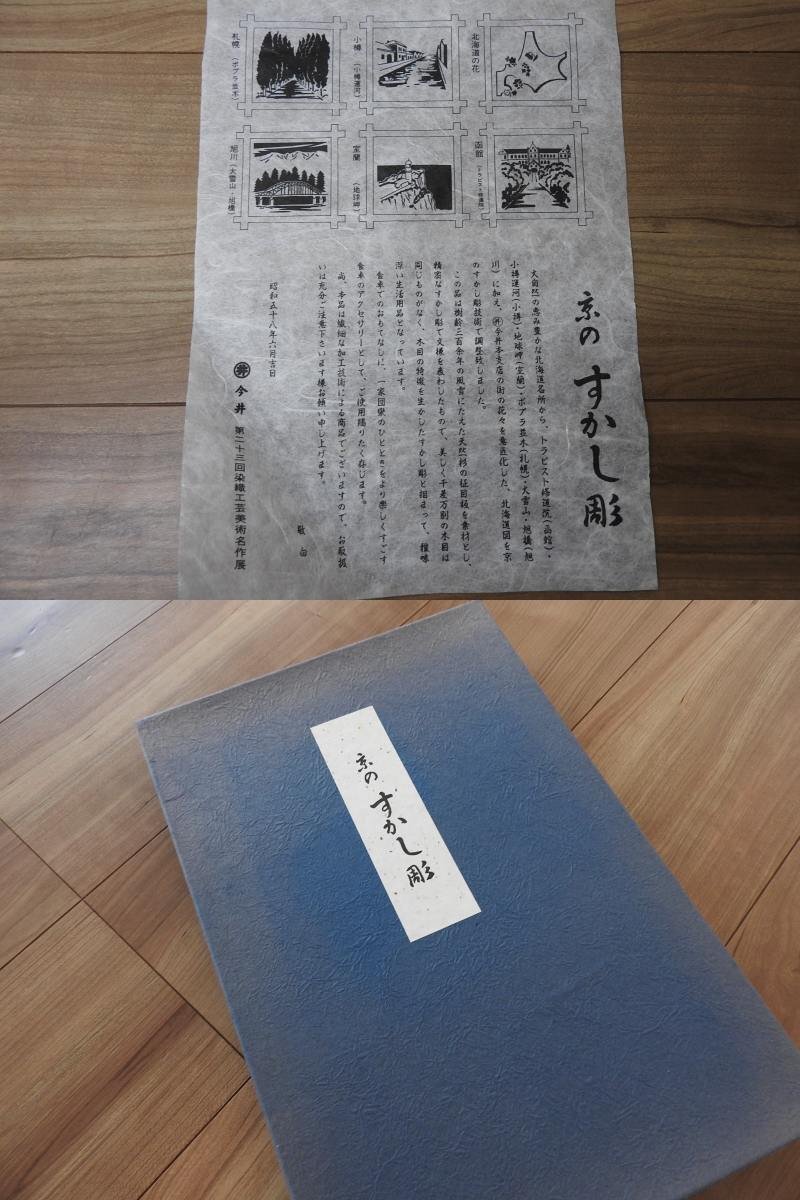 北海道の花
小樽(小樽運河)
札幌(ポプラ並木)
函館(トラピスト修道院)
室蘭(地球岬)
旭川(大雪山・旭橋)
京のすかし彫
大自然の恵み豊かな北海道名所から、トラピスト修道院(函館)・
小樽運河(小樽)・地球岬(室蘭)・ポプラ並木(札幌)・大雪山・旭橋(旭
川)に加え、㊥今井本支店の街の花々を意匠化した、北海道図を京
のすかし彫技術で調整致しました。
この品は樹齢三百余年の風雪にたえた天然杉の柾目板を素材とし、
精密なすかし彫で文様を表わしたもので、美しく千差万別の木目は
同じものがなく、木目の特徴を生かしたすかし彫と相まって、種味
深い生活用品となっています。
食卓でのおもてなしに、一家団欒のひとときをより楽しくすごす
食卓のアクセサリーとして、ご使用賜りたく存じます。
尚、本品は繊細な加工技術による商品でございますので、お取扱
いは充分ご注意下さいます様お願い申し上げます。
敬白
昭和五十八年六月吉日
今井 第二十三回染織工芸美術名作展
京のすかし彫